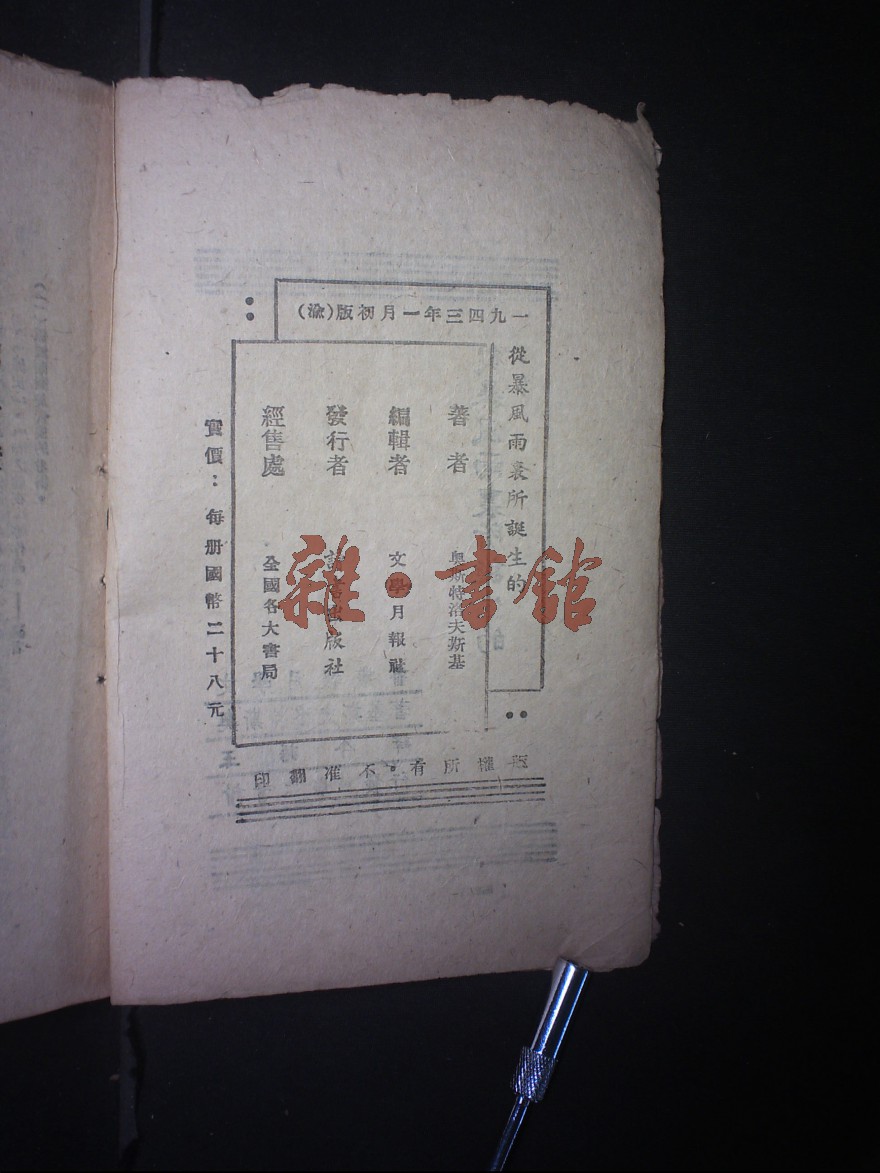 一九四三年一月初版(渝)
從暴風雨裏所誕生的
著者 奥斯特洛夫斯基
編輯者 文學月報社
發行者 出版社
經售處 全國各大書局
實價：每册國幣二十八元
版權所有•不准翻印
雜•書館